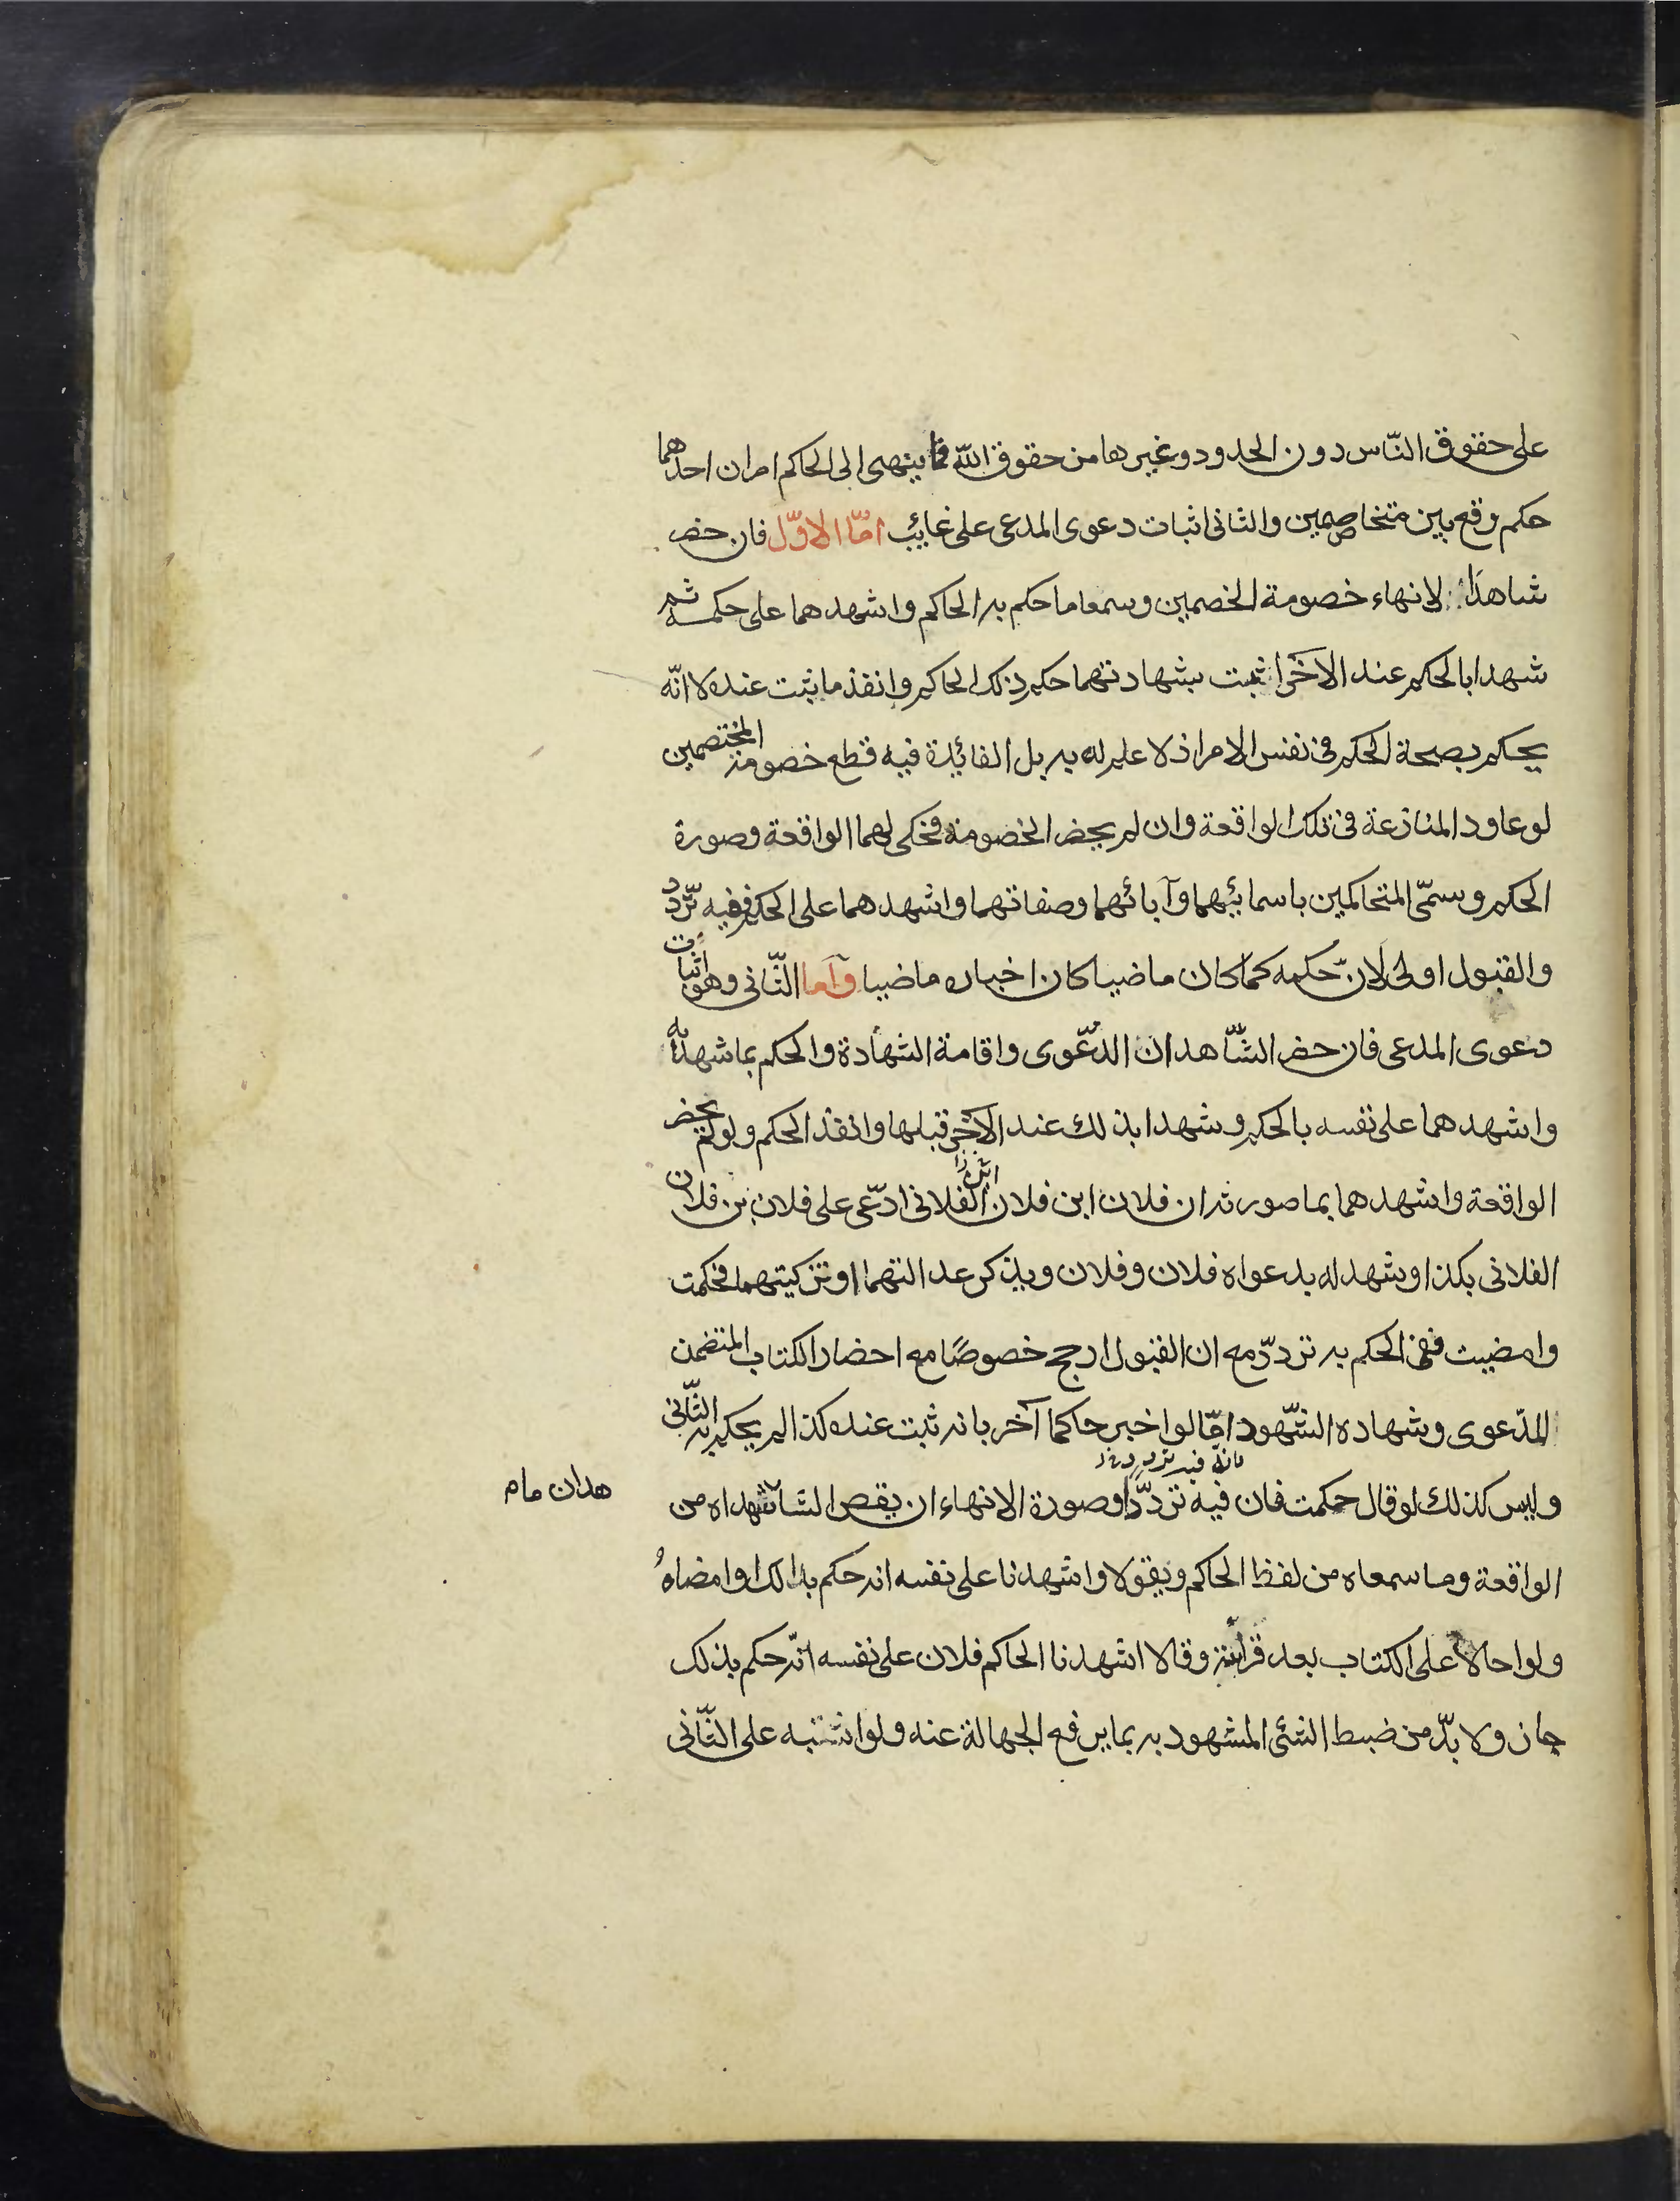 على حقوق النّاس دون الحدود وغيرها من حقوق الله فما ينهى الى الحاكم امران احدهما
حكم وقع بين متخاصمين والثانى اثبات دعوى المدعى على غائب امّا الاوّل فان حضر
شاهدا لانهاء خصومة الخصمين وسمعا ما حكم به الحاكم واشهدهما على حكمه ثم
شهدا بالحكم عند الآخر اثبت بشهادتهما حكم ذلك الحاكم وانفذ ما ثبت عنده لا انّه
يحكم بصحة الحكم فى نفس الامر اذ لا علم له به بل الفائدة فيه قطع خصومة المختصمين
لو عاود المنازعة فى تلك الواقعة وان لم يحضر الخصومة فحكى لهما الواقعة وصورة
الحكم وسمّى المتحاكمين باسمائهما وآبائهما وصفاتهما واشهدهما على الحكم ففيه تردّد
والقبول اولى لانّ حكمه كما كان ماضيا كان اخباره ماضيا وآما الثّانى وهو اثبات
دعوى المدعى فان حضر الشّاهدان الدّعوى واقامة الشهادة والحكم بما شهدا به
واشهدهما على نفسه بالحكم وشهدا بذلك عند الآخر قبلها وانفذ الحكم ولو لم يحضر
الواقعة واشهدهما بما صورته ان فلان ابن فلان الفلانى ادّعى على فلان بن فلان
الفلانى بكذا وشهد له بدعواه فلان وفلان ويذكر عدالتهما او تزكيتهما فحكمت
وامضيت ففى الحكم به تردّد مع ان القبول ارجح خصوصًا مع احضار الكتاب المتضمن
الدّعوى وشهاده الشّهود امّا لو اخبر حاكما آخر بانه ثبت عنده كذا لم يحكم به الثّانى
وليس كذلك لو قال حكمت فان فيه تردّدا وصورة الانهاء ان يقص الشا شهداه من
هدان ما م
الواقعة وما سمعاه من لفظ الحاكم ويقولا واشهدنا على نفسه انه حكم بذالك وامضاهُ
ولو احالا على الكتاب بعد قرائته وقالا اشهدنا الحاكم فلان على نفسه انّه حكم بذلك
جاز ولا بدّ من ضبط الشئ المشهود به بما يرفع الجهالة عنه ولو اشتبه على الثّانى